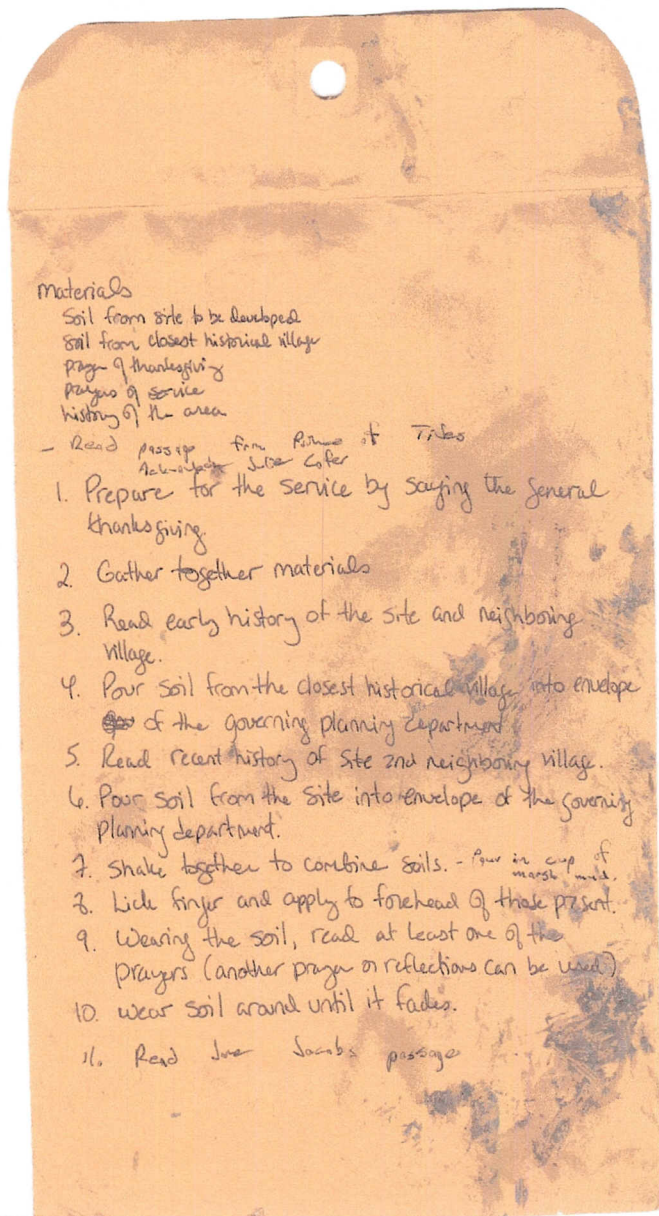 materials
Soil from site to be developed
Soil from closest historical village
prayer of thanksgiving
prayers of service
history of the area
- Read passage from Prince of Tides
Acknowledge Cofer
1. Prepare for the service by saying the general
thanksgiving.
2. Gather together materials
3. Read early history of the site and neighboring
village.
4. Pour soil from the closest historical village into envelope
of the governing planning department
5. Read recent history of site and neighboring village.
6. Pour soil from the site into envelope of the governing
planning department.
7. Shake together to combine soils. - Pour in cup of
marsh mud.
8. Lick finger and apply to forehead of those present.
9. Wearing the soil, read at least one of the
prayers (another prayer or reflections can be used)
10. wear soil around until it fades.
11. Read Jane Jacobs passage